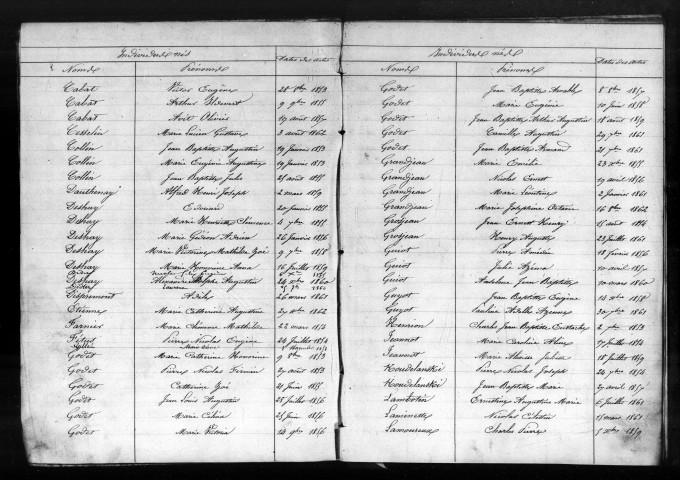 Individus nés
Dates des actes
Noms
Prénoms
Cabat Victor Eugène 28 8bre 1853
Cabat Arthur 9 9bre 1855
Cabat 19 août
Marie Lucien Gustave 3 août 1862
Collin Jean Baptiste Augustin 19 Janvier 1853
Collin Marie Eugénie Augustine 19 Janvier 1853
Collin Jean Baptiste Jules 25 août 1855
Dauthenay Alfred Henri Joseph 2 mars 1859
Deshay Edouard 20 Janvier 1855
Deshay Marie Henriette Clémence 5 7bre 1855
Deshay Marie Gédéon Adrien 26 Janvier 1856
Deshay Marie Victorine Mathilde Zoé 9 7bre 1858
Deshay Marie Honorine Anna 16 Juillet 1859
Deshay Augustin 24 1860
Adèle 26 mars 1861
Etienne Marie Catherine Augustine 29 1862
Farnier Marie Mathilde 22 mars 1854
Pierre Nicolas Eugène 24 Juillet 1854
Godet Marie Catherine Honorine 9 8bre 1853
Godet Pierre Nicolas Firmin 29 Janvier 1853
Godet Catherine Zoé 21 Juin 1855
Godet Jean Louis Augustin 25 Juillet 1856
Godet Marie Célina 25 Juin 1856
Godet Marie Victoria 24 9bre 1856
Individus nés
Dates des actes
Noms
Prénoms
Godet Jean Baptiste 8 8bre
Godet Marie Eugénie 10 Juin 1858
Godet Jean Baptiste Arthur Augustin 18 août 1859
Godet Camille Augustin 29 7bre 1861
Godet Jean Baptiste Armand 21 7bre 1861
Grandjean Marie Emélie 23 1855
Grandjean Nicolas Ernest 19 avril 1856
Grandjean Marie Léontine 2 Janvier 1861
Grandjean Marie Joséphine 16 8bre 1862
Grosjean Jean Ernest Henry 15 août
Grosjean Henry Auguste 23 Juillet 1861
Guiot Pierre Amédée 18 février 1856
Guiot Julie 10 avril
Guiot Jean Baptiste 10 mars 1860
Guyot Jean Baptiste Eugène 14 1858
Guyot Pauline Adèle 30 7bre 1861
Henrion Charles Jean Baptiste Eustache 2 7bre 1853
Jeannot Marie Caroline 17 Juillet 1854
Jeannot Marie 18 Juillet 1859
Koudelanskié Pierre Nicolas Joseph 24 7bre 1854
Koudelanskié Jean Baptiste Marie 29 avril
Lambotin Ernestine Augustine Marie 6 Juillet 1861
Nicolas Célestin 15 mars 1861
Lamoureux Charles Pierre 5